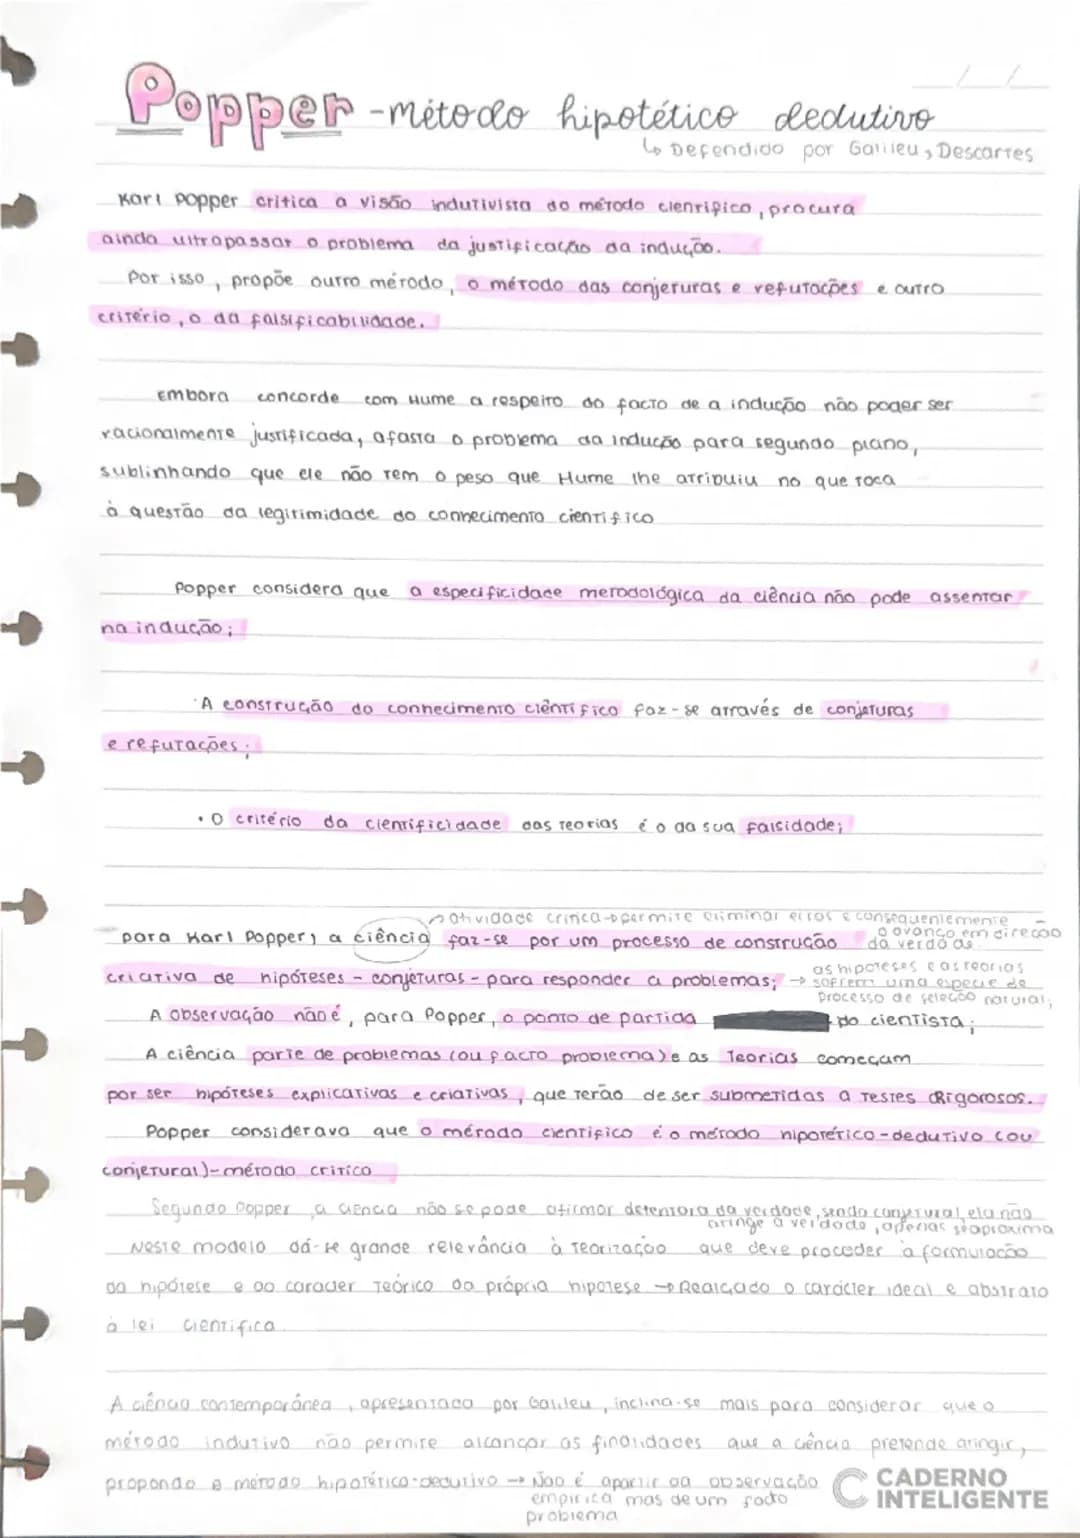 Popper - método hipotético dedutivo
↳ Defendido por Galileu, Descartes
Karl Popper critica a visão indutivista do método científico, procura
ainda ultrapassar o problema da justificação da indução.
Por isso, propõe outro método, o método das conjeturas e refutações e outro
critério, o da falsificabilidade.
Embora concorde com Hume a respeito do facto de a indução não poder ser
racionalmente justificada, afasta o problema da indução para segundo plano,
sublinhando que ele não tem o peso que Hume lhe atribuiu no que toca
à questão da legitimidade do conhecimento científico
Popper considera que a especificidade metodológica da ciência não pode assentar
na indução;
·A construção do conhecimento científico faz-se através de conjeturas
e refutações;
• O critério da cientificidade das teorias é o da sua falsidade;
→ atividade crítica → permite eliminar erros e consequentemente
o avanço em direção
para Karl Popper, a ciência faz-se por um processo de construção
da verdade
as hipóteses e as teorias
criativa de hipóteses - conjeturas - para responder a problemas; → sofrem uma espécie de
processo de seleção natural;
A observação não é, para Popper, o ponto de partida do cientista;
A ciência parte de problemas (ou facto problema) e as teorias começam
por ser hipóteses explicativas e criativas, que terão de ser submetidas a testes rigorosos.
Popper considerava que o método científico é o método hipotético-dedutivo (ou
conjetural)-método crítico
Segundo Popper, a ciência não se pode afirmar detentora da verdade, sendo conjetural, ela não
atinge a verdade, apenas se aproxima
Neste modelo dá-se grande relevância à teorização que deve proceder à formulação
da hipótese e ao caracter teórico da própria hipotese → Realçado o carácter ideal e abstrato
à lei científica.
A ciência contemporânea, apresentada por Galileu, inclina-se mais para considerar que o
método indutivo não permite alcançar as finalidades que a ciência pretende atingir,
propondo o método hipotético-dedutivo → Não é apartir da observação
empírica mas de um facto
problema
CADERNO
INTELIGENTE